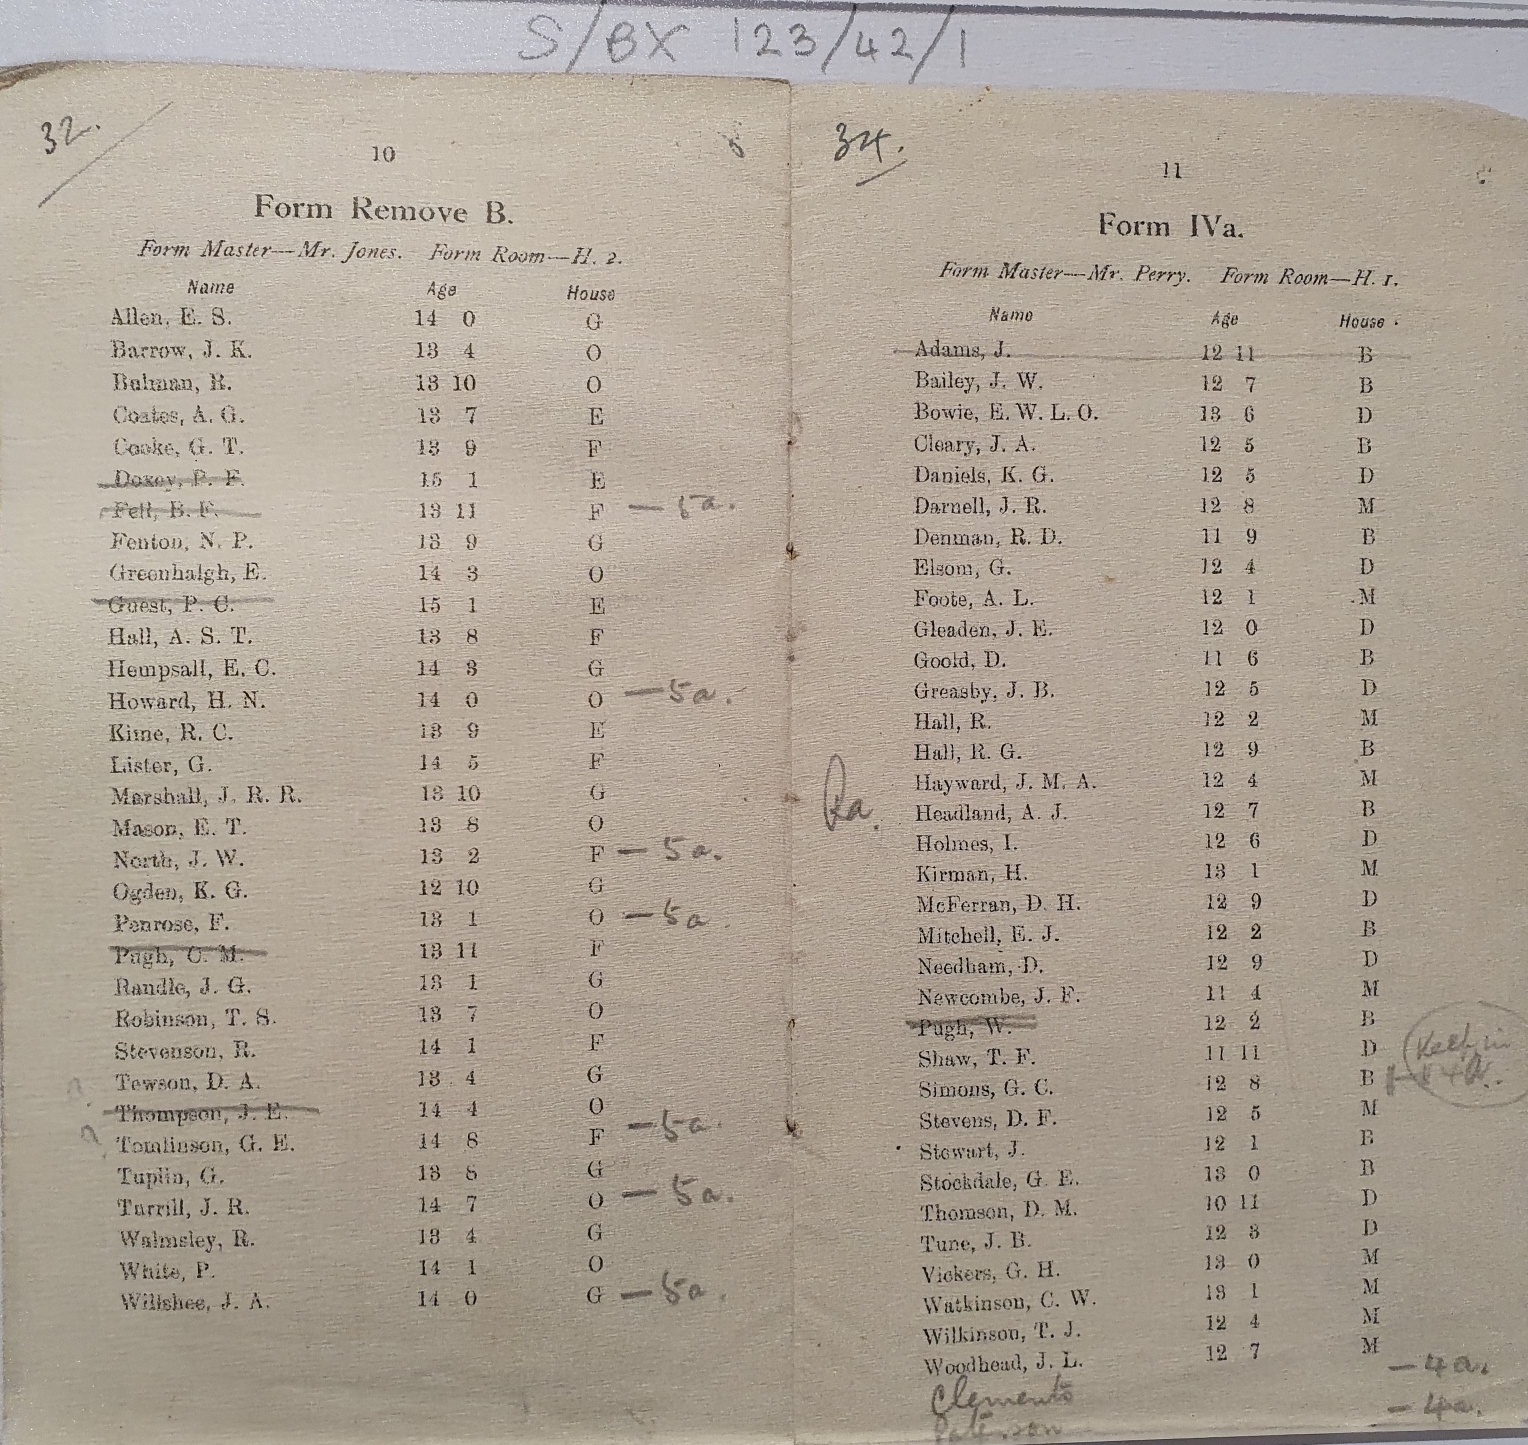 S/BX 123/42/1
32.
10
Form Remove B.
Form Master—Mr. Jones. Form Room—H. 2.
Name Age House
Allen, E. S. 14 0 G
Barrow, J. K. 13 4 O
Bulman, R. 13 10 O
Coates, A. G. 13 7 E
Cooke, G. T. 13 9 F
Doxey, P. F. 15 1 E
Fell, B. F. 13 11 F — 5a.
Fenton, N. P. 13 9 G
Greenhalgh, E. 14 3 O
Guest, P. C. 15 1 E
Hall, A. S. T. 13 8 F
Hempsall, E. C. 14 3 G
Howard, H. N. 14 0 O — 5a.
Kime, R. C. 13 9 E
Lister, G. 14 5 F
Marshall, J. R. R. 13 10 G
Mason, E. T. 13 8 O
North, J. W. 13 2 F — 5a.
Ogden, K. G. 12 10 G
Penrose, F. 13 1 O — 5a
Pugh, C. M. 13 11 F
Randle, J. G. 13 1 G
Robinson, T. S. 13 7 O
Stevenson, R. 14 1 F
? Tewson, D. A. 13 4 G
Thompson, J. E. 14 4 O
? Tomlinson, G. E. 14 8 F — 5a.
Tuplin, G. 13 8 G
Turrill, J. R. 14 7 O — 5a.
Walmsley, R. 13 4 G
White, P. 14 1 O
Willshee, J. A. 14 0 G — 5a.
34.
11
Form IVa.
Form Master—Mr. Perry. Form Room—H. 1.
Name Age House
Adams, J. 12 11 B
Bailey, J. W. 12 7 B
Bowie, E. W. L. O. 13 6 D
Cleary, J. A. 12 5 B
Daniels, K. G. 12 5 D
Darnell, J. R. 12 8 M
Denman, R. D. 11 9 B
Elsom, G. 12 4 D
Foote, A. L. 12 1 M
Gleaden, J. E. 12 0 D
Goold, D. 11 6 B
Greasby, J. B. 12 5 D
Hall, R. 12 2 M
Hall, R. G. 12 9 B
Hayward, J. M. A. 12 4 M
Ra. Headland, A. J. 12 7 B
Holmes, I. 12 6 D
Kirman, H. 13 1 M
McFerran, D. H. 12 9 D
Mitchell, E. J. 12 2 B
Needham, D. 12 9 D
Newcombe, J. F. 11 4 M
Pugh, W. 12 2 B
Shaw, T. F. 11 11 D Keep in
Simons, G. C. 12 8 B 4a.
Stevens, D. F. 12 5 M
Stewart, J. 12 1 B
Stockdale, G. E. 13 0 B
Thomson, D. M. 10 11 D
Tune, J. B. 12 3 D
Vickers, G. H. 13 0 M
Watkinson, C. W. 13 1 M
Wilkinson, T. J. 12 4 M
Woodhead, J. L. 12 7 M
Clements — 4a.
— 4a.